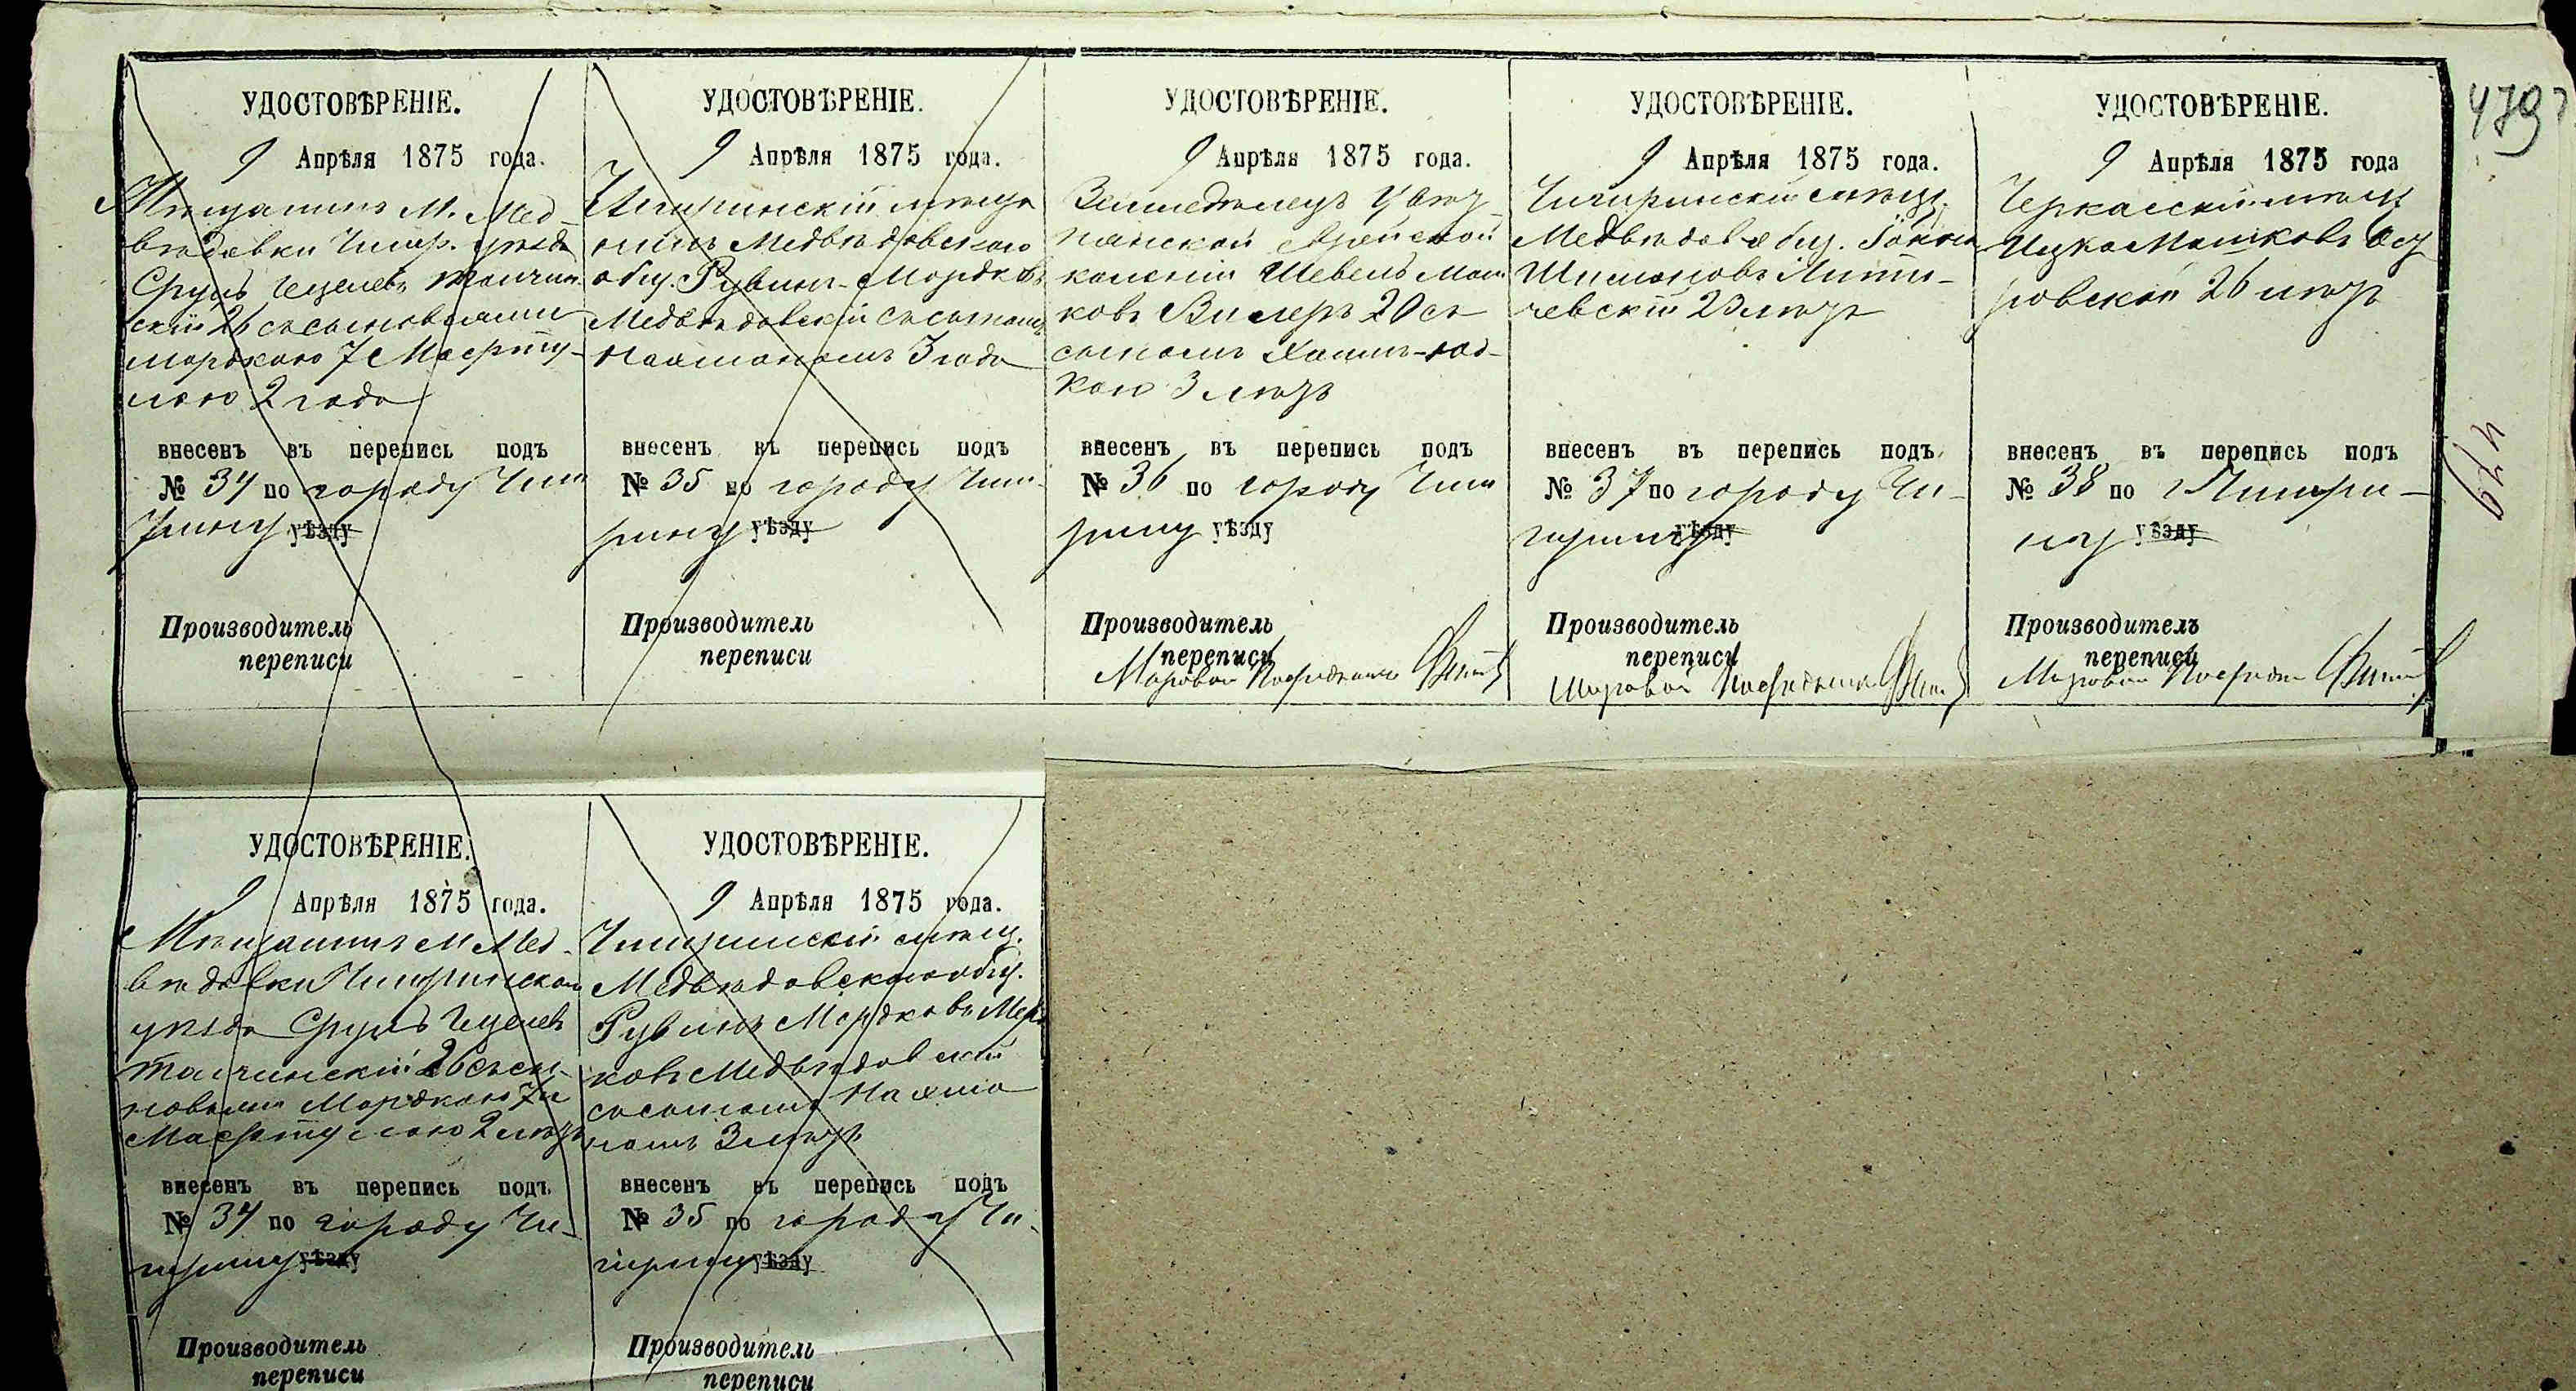 УДОСТОВѢРЕНІЕ.
9 Апрѣля 1875 года.
Мѣщанинъ М. Мед-
вѣдовки Чигир. уѣзда
Сруль
скій 26 съ сыновьями
Мордкою 7
лою 2 года
внесенъ въ перепись подъ
№ 34 по городу Чиги
рину уѣзду
Производитель
переписи
УДОСТОВѢРЕНІЕ.
9 Апрѣля 1875 года.
Чигиринскій мѣща
нинъ Медвѣдовскаго
общ. Рувинъ Мордковъ
Медвѣдовскій съ сыномъ
3 года
внесенъ въ перепись подъ
№ 35 по городу Чиги-
рину уѣзду
Производитель
переписи
УДОСТОВѢРЕНІЕ.
9 Апрѣля 1875 года.
Земледѣлецъ
еврейской
колоніи Шевель Мош
ковъ 20 съ
сыномъ Хаимъ-
кою 3 лѣтъ
внесенъ въ перепись подъ
№ 36 по городу Чиги
рину уѣзду
Производитель
переписи
Мировой Посредникъ
УДОСТОВѢРЕНІЕ.
9 Апрѣля 1875 года.
Чигиринскій мѣщ.
Медвѣдов. общ.
Шимоновъ
чевскій 23 лѣтъ
внесенъ въ перепись подъ
№ 37 по городу Чи-
гирину уѣзду
Производитель
переписи
Мировой Посредникъ
УДОСТОВѢРЕНІЕ.
9 Апрѣля 1875 года
Черкасскій мѣщ
Ицко Мошковъ
ровскій 26 лѣтъ
внесенъ въ перепись подъ
№ 38 по г Чигири-
ну уѣзду
Производитель
переписи
Мировой Посредн
479
479
УДОСТОВѢРЕНІЕ.
9 Апрѣля 1875 года.
Мѣщанинъ М Мед-
вѣдовки Чигиринскаго
уѣзда Сруль
26 съ сы-
новьями Мордкою 7 и
лою 2 лѣтъ
внесенъ въ перепись подъ
№ 34 по городу Чи-
гирину уѣзду
Производитель
переписи
УДОСТОВѢРЕНІЕ.
9 Апрѣля 1875 года.
Чигиринскій мѣщ.
Медвѣдовскаго общ.
Рувинъ Мордковъ
ковъ Медвѣдовскій
съ сыномъ
номъ 3 лѣтъ
внесенъ въ перепись подъ
№ 35 по городу Чи-
гирину уѣзду
Производитель
переписи